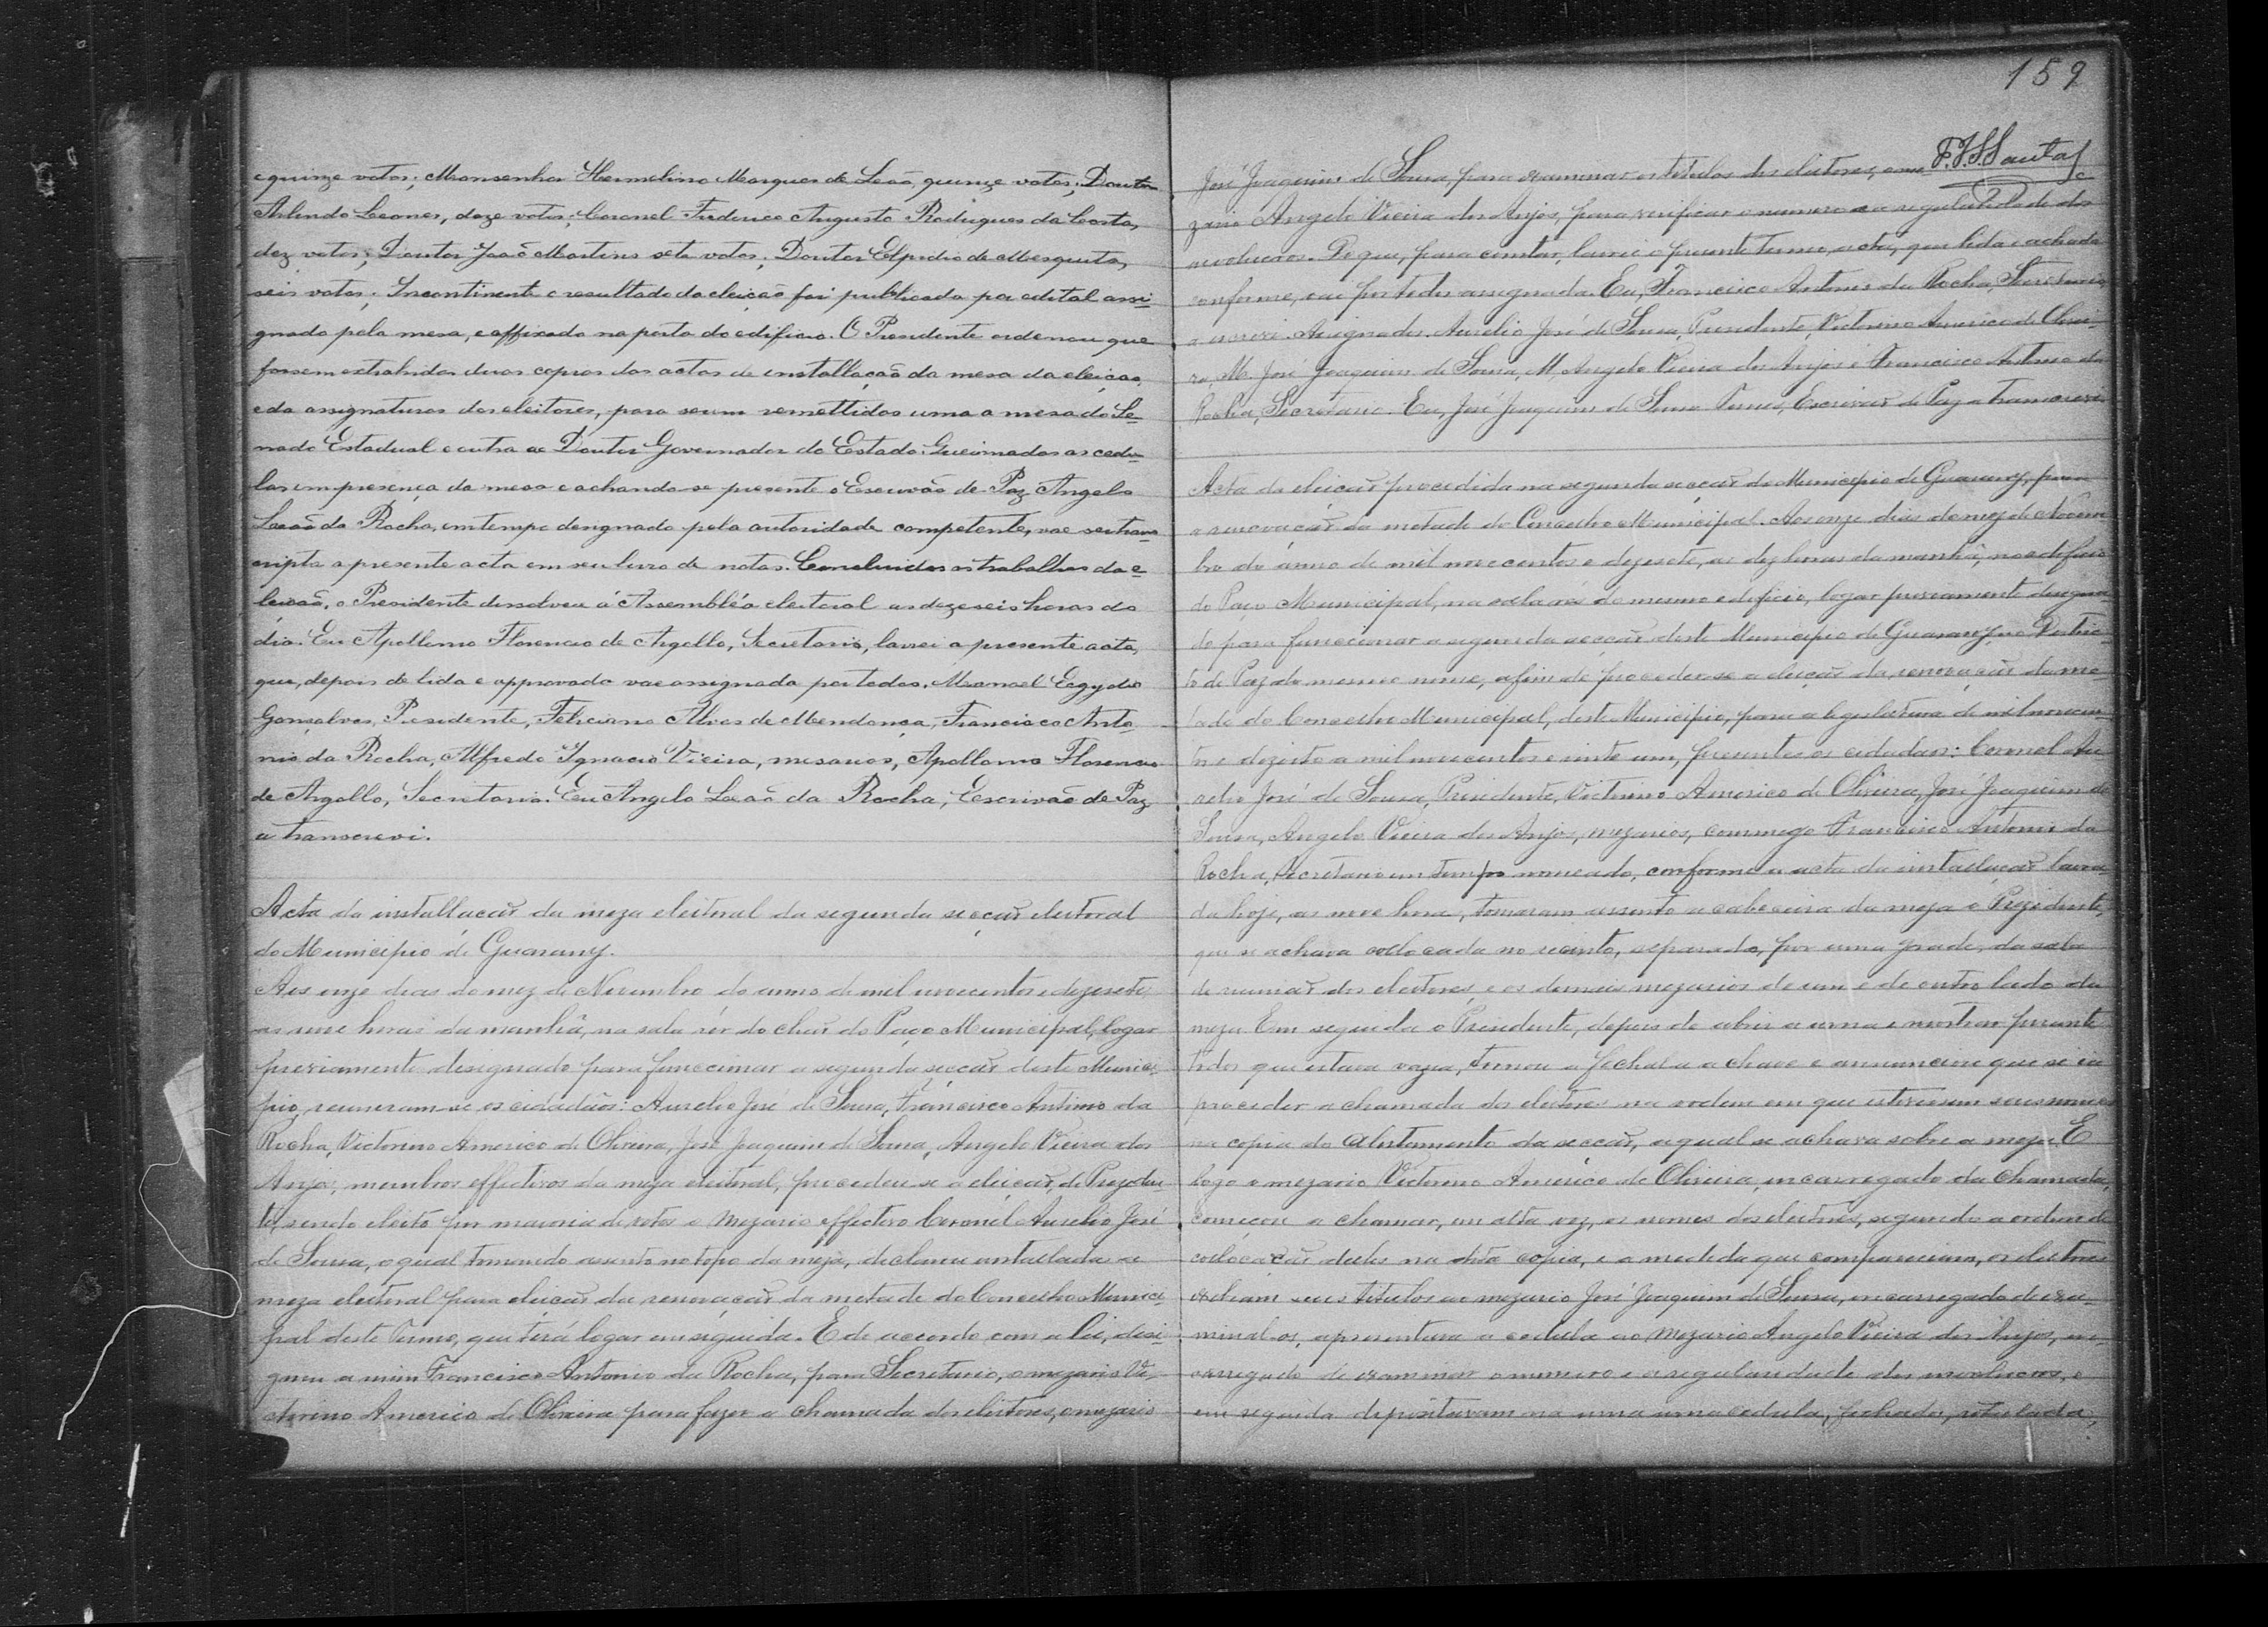 e quinze votos; Monsenhor Hermelino Marques de Leão, quinze votos; Doutor
Arlindo Leones, doze votos; Coronel Frederico Augusto Rodrigues da Costa,
dez votos; Doutor João Martins sete votos; Doutor Elpidio de Mesquita,
seis votos. Incontinente o resultado da eleição foi publicado por edital assi-
gnado pela mesa, e affixado na porta do edificio. O Presidente ordenou que
fossem extrahidas duas copias das actas de installação da mesa da eleição,
e da assignaturas dos eleitores, para serem remettidas uma a mesa do Se-
nado Estadual e outra ao Doutor Governador do Estado. Queimadas as cedu-
las em presença da mesa e achando-se presente o Escrivão de Paz Angelo
Leão da Rocha, em tempo designado pela autoridade competente, vae ser trans-
cripta a presente acta em seu livro de notas. Concluidos os trabalhos da e-
leição, o Presidente dissolveu a Assembléa eleitoral as dezeseis horas do
dia. Eu Apollonio Florencio de Argollo, Secretario, lavrei a presente acta,
que, depois de lida e approvada vae assignada por todos. Manoel Egydio
Gonsalves, Presidente, Feliciano Alves de Mendonça, Francisco Anto-
nio da Rocha, Alfredo Ignacio Vieira, mesarios, Apollonio Florencio
de Argollo, Secretario. Eu Angelo Leão da Rocha, Escrivão de Paz
a transcrevi.
Acta da installacão da meza eleitoral da segunda secção eleitoral
do Municipio de Guarany.
Aos onze dias do mez de Novembro do anno de mil novecentos e dezesete
as nove horas da manhã, na sala rér do chão do Paço Municipal, logar
previamente designado para funccionar a segunda secção deste Munici-
pio, reuneram-se os cidadãos: Aurelio José de Sousa, Francisco Antonio da
Rocha, Victorino Americo de Oliveira, José Joaquim de Sousa, Angelo Vieira dos
Anjos, membros effectivos da meza eleitoral, procedeu-se a eleição, de Preziden-
te, sendo eleito por maioria de votos o Mezario effectivo Coronel Aurelio José
de Sousa, o qual tomando assento no topo da meza, declarou installada a
meza eleitoral para eleição da renovação da metade do Conselho Munici-
pal deste Termo, que terá logar em seguida. E de accordo com a lei, desi-
gnou a mim Francisco Antonio da Rocha, para Secretario, o mezario Vi-
ctorino Americo de Oliveira para fazer a chamada dos eleitores, o mezario
159
F.J.S.Santos
José Joaquim de Sousa, para examinar os titulos dos eleitores, o me
zario Angelo Vieira dos Anjos, para verificar o numero e a regularidade dos
involucros. Do que, para constar, lavrei o presente termo, acta, que lida e achada
conforme, vae por todos assignada. Eu, Francisco Antonio da Rocha, Secretario,
a escrevi. Assignados. Aurelio José de Sousa, Presidente, Victorino Americo de Olivei-
ra, M. José Joaquim de Sousa, M. Angelo Vieira dos Anjos e Francisco Antonio da
Rocha, Secretario. Eu, José Joaquim de Sousa Escrivão de Paz a transcrevi
Acta da eleição procedida na segunda secção do Municipio de Guarany, para
a renovação da metade do Conselho Municipal. Aos onze dias do mez de Novem
bro do anno de mil novecentos e dezesete, as dez horas da manhã, no edificio
do Paço Municipal, na sala rés do mesmo edificio, logar previamente designa-
do para funccionar a segunda secção deste Municipio de Guarany, no Distric-
to de Paz do mesmo nome, afim de proceder-se a eleição da renovação da me-
tade do Conselho Municipal, deste Municipio, para a legislatura de mil novecen-
tos e dezoito a mil novecentos e vinte um, presentes os cidadãos: Coronel Au
relio José de Sousa, Presidente, Victorino Americo de Oliveira, José Joaquim de
Sousa, Angelo Vieira dos Anjos, mezarios, commego Francisco Antonio da
Rocha, Secretario em tempo nomeado, conforme a acta da installação lavra
da hoje, as nove horas, tomaram assento a cabeceira da meza o Prezidente,
que se achava collocada no recinto, separado, por uma grade, da sala
de reunião dos eleitores, e os demais mezarios de um e de outro lado da
meza. Em seguida o Presidente, depois de abrir a urna e mostrar perante
todos que estava vazia, tornou a fechal-a a chave e annunciou que se ia
proceder a chamada dos eleitores na ordem em que estivessem seus nomes
na copia do alistamento da secção, a qual se achava sobre a meza. E
logo o mezario Victorino Americo de Oliveira, encarregado da chamada,
começou a chamar, em alta voz, os nomes dos eleitores, segundo a ordem de
collocação delles na dita copia, e a medida que compareciam, os eleitores
exibiam seus titulos ao mezario José Joaquim de Sousa, encarregado de exa-
minal-os, apresentava a cedula ao Mezario Angelo Vieira dos Anjos, en-
carregado de examinar o numero e a regularidade dos involucros, e
em seguida depositavam na urna uma cedula, fechada, rotulada,